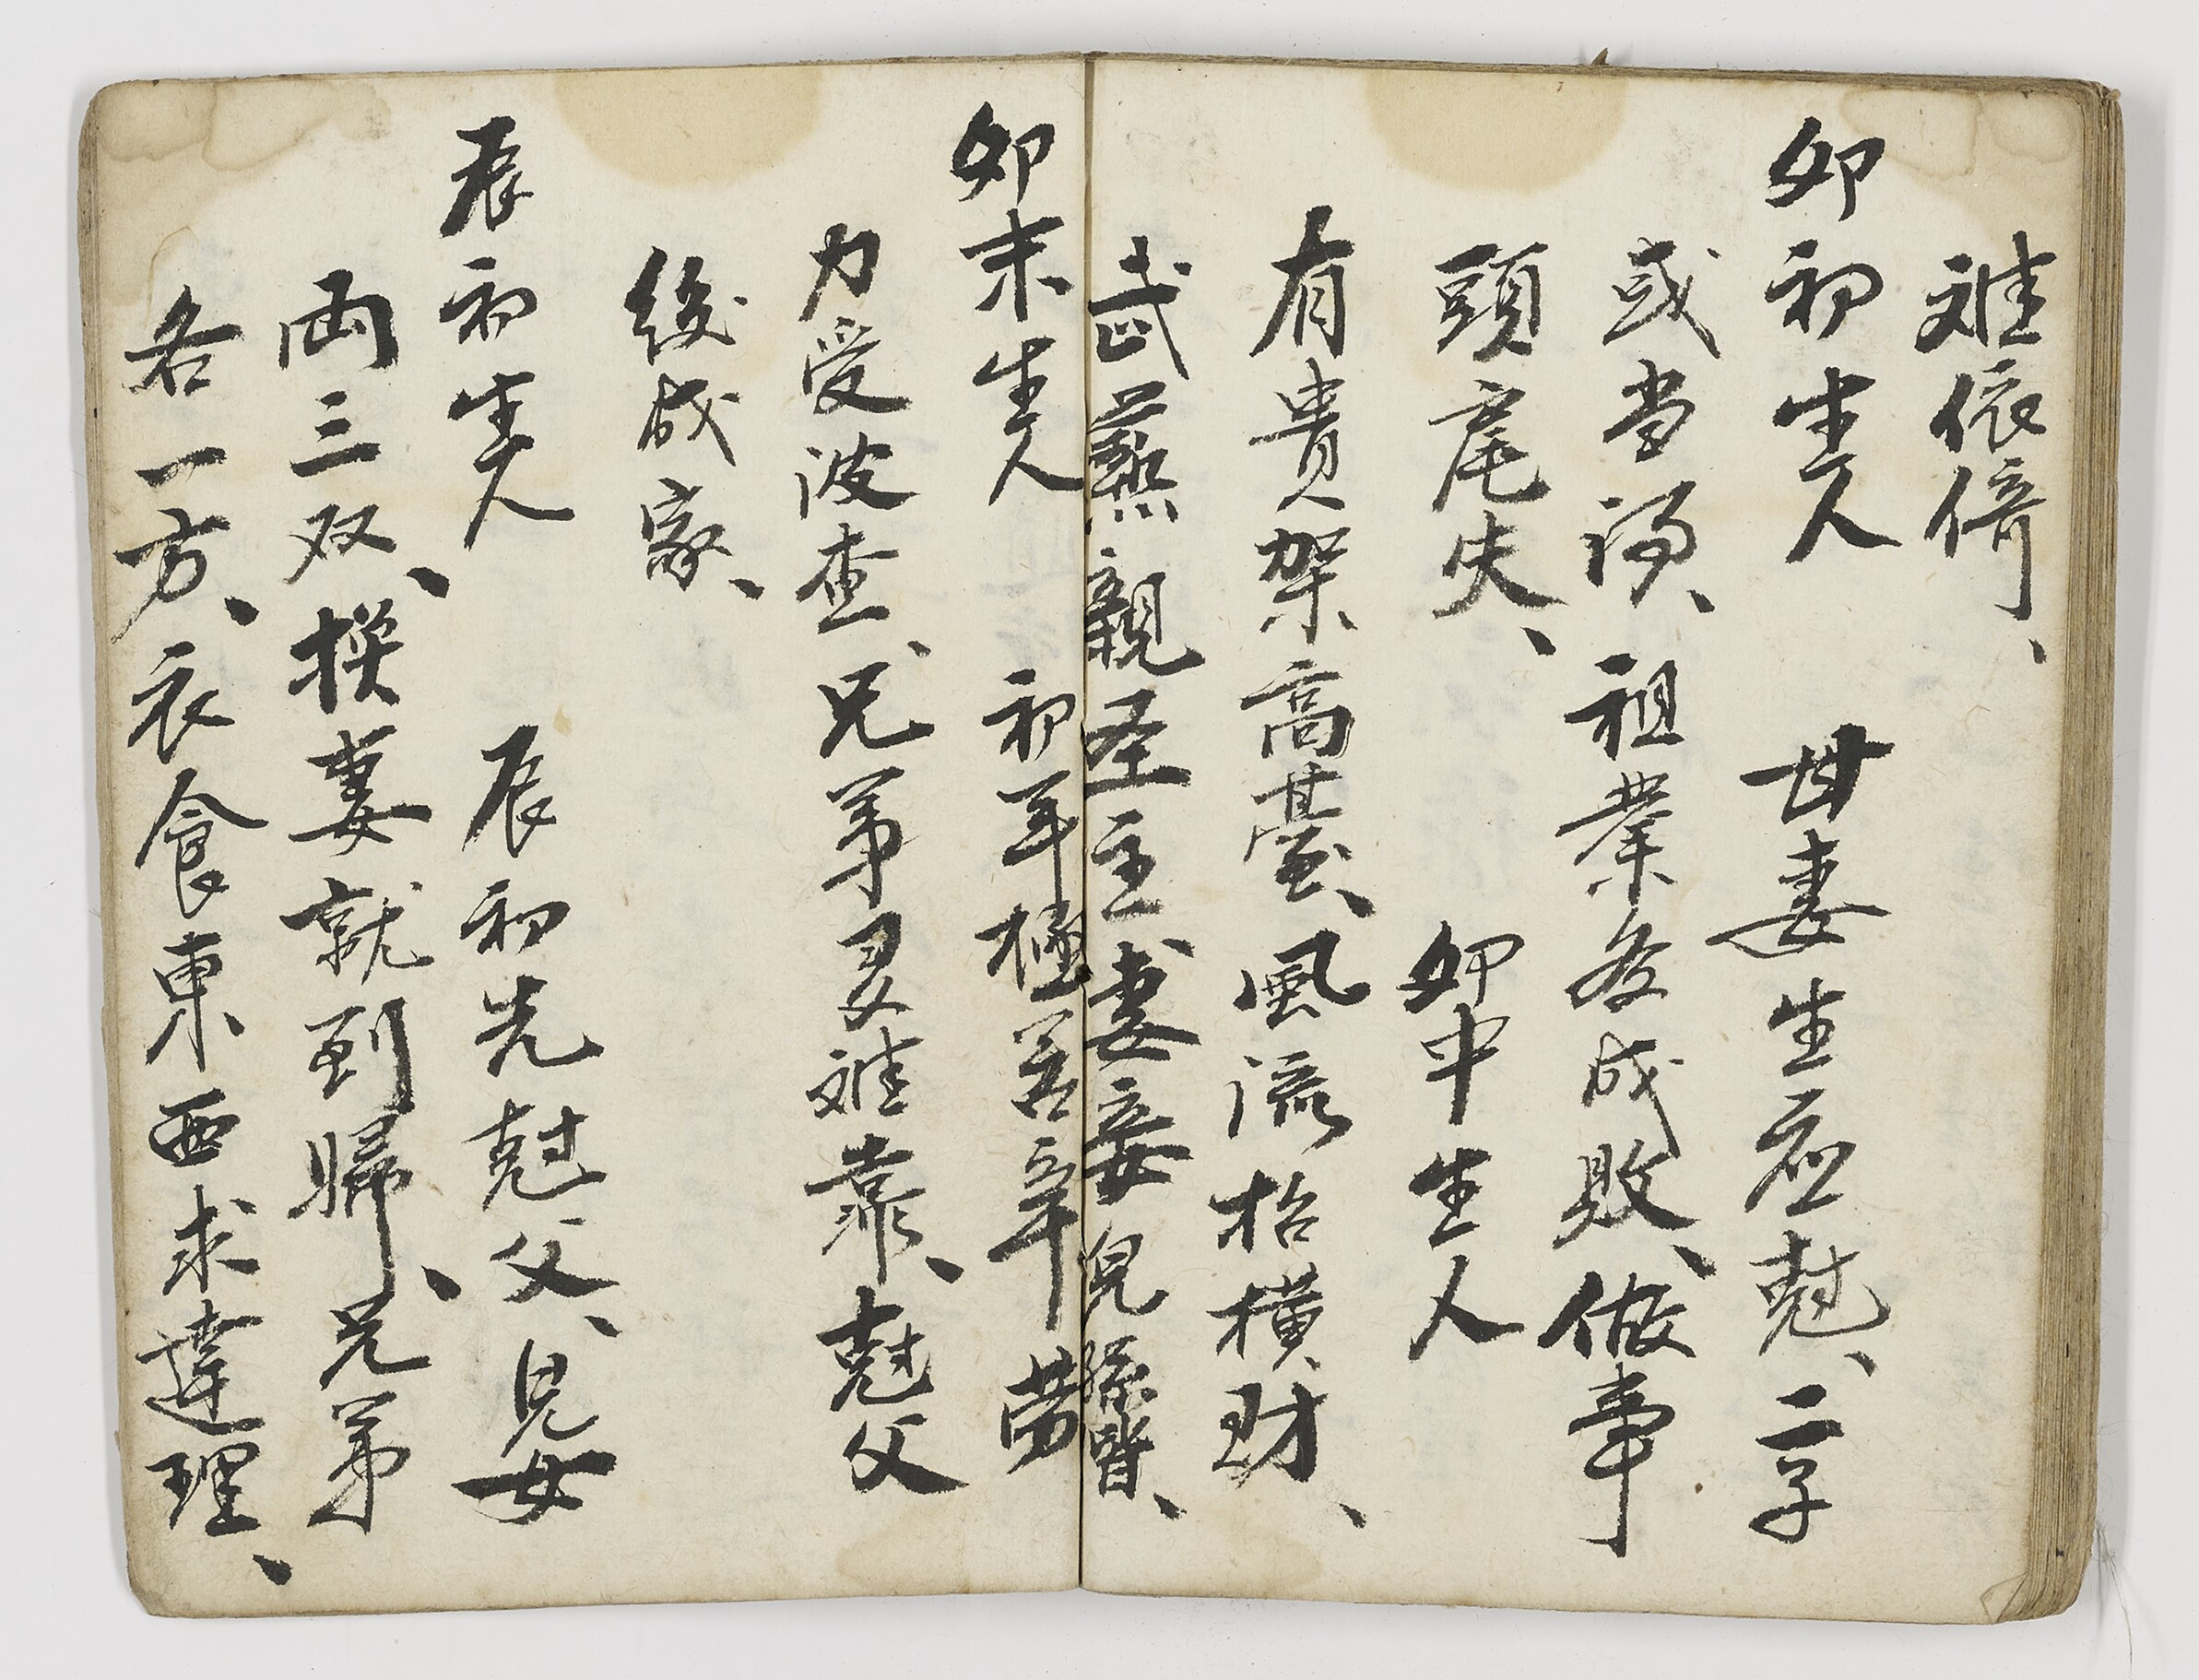 难依倚、
卯初生人 母妻生应尅、二子
或当詞、祖業多成敗、做事
頭尾失、 卯中生人
有貴架高臺、風流招横財、
武藝親圣主、妻妾兒孫賢、
卯末生人 初年極苦辛劳
力受波查、兄弟難靠、尅父
後成家、
辰初生人 辰初先尅父、兒女
両三双、換妻就到歸、兄弟
各一方、衣食東西求達理、